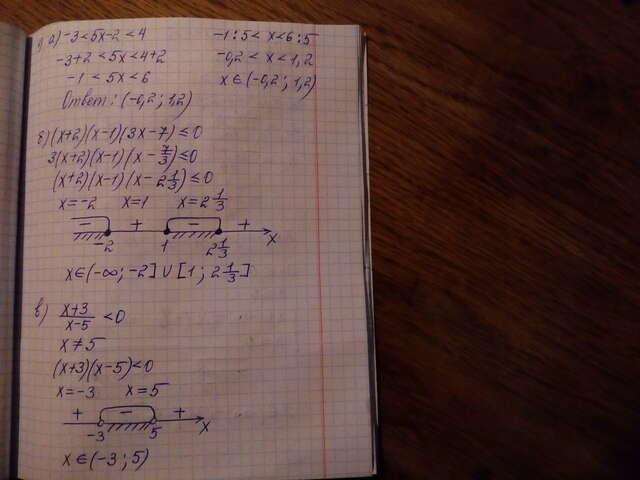 1) а) -3<5x-2<4
-3+2<5x<4+2
-1<5x<6
-1:5<x<6:5
-0,2<x<1,2
x∈(-0,2; 1,2)
Ответ: (-0,2; 1,2)
б) (x+2)(x-1)(3x-7)≤0
3(x+2)(x-1)(x-7/3)≤0
(x+2)(x-1)(x-2 1/3)≤0
x=-2 x=1 x=2 1/3
- + - +
-2 1 2 1/3 x
x∈(-∞; -2]∪[1; 2 1/3]
в) x+3/x-5 <0
x≠5
(x+3)(x-5)<0
x=-3 x=5
+ - +
-3 5 x
x∈(-3; 5)